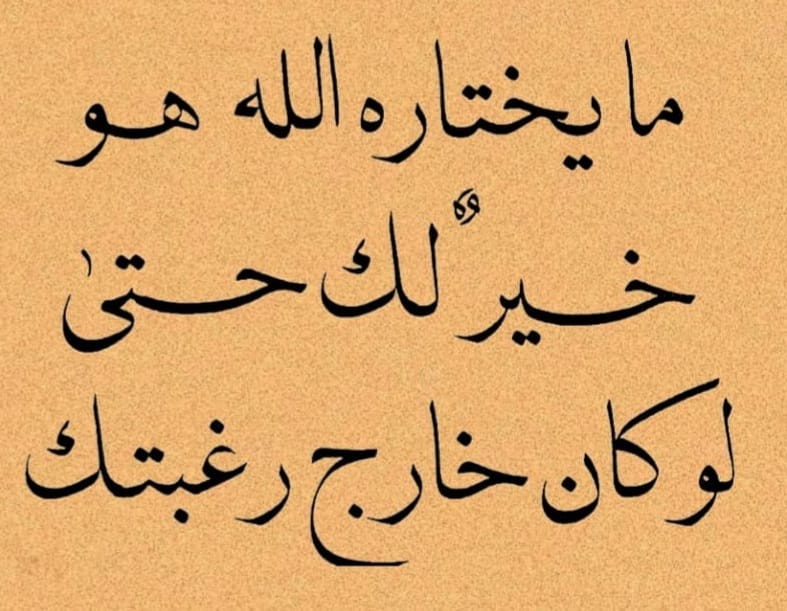 ما يختاره الله هو
خيرٌ لك حتىٰ
لو كان خارج رغبتك